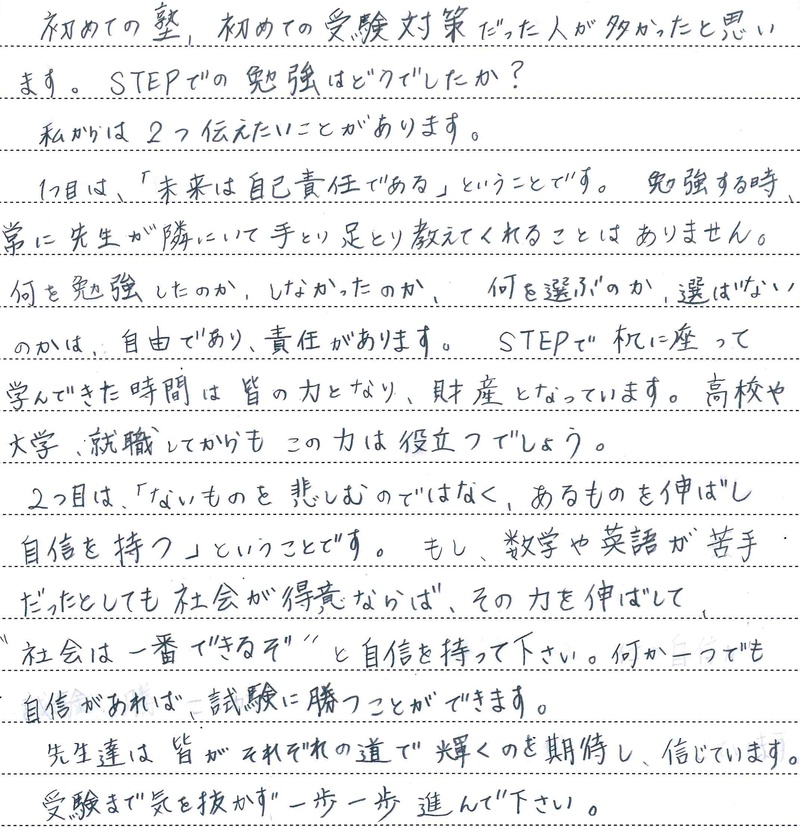 初めての塾, 初めての受験対策だった人が多かったと思い
ます。 STEPでの勉強はどうでしたか?
私からは2つ伝えたいことがあります。
1つ目は、「未来は自己責任である」ということです。 勉強する時、
常に先生が隣にいて手とり足とり教えてくれることはありません。
何を勉強したのか、しなかったのか、 何を選ぶのか、選ばない
のかは、自由であり、責任があります。 STEPで机に座って
学んできた時間は皆の力となり、財産となっています。高校や
大学、就職してからもこの力は役立つでしょう。
2つ目は、「ないものを悲しむのではなく、あるものを伸ばし
自信を持つ」ということです。 もし、数学や英語が苦手
だったとしても社会が得意ならば、その力を伸ばして、
"社会は一番できるぞ"と自信を持って下さい。何か一つでも
自信があれば、試験に勝つことができます。
先生達は皆がそれぞれの道で輝くのを期待し、信じています。
受験まで気を抜かず一歩一歩進んで下さい。